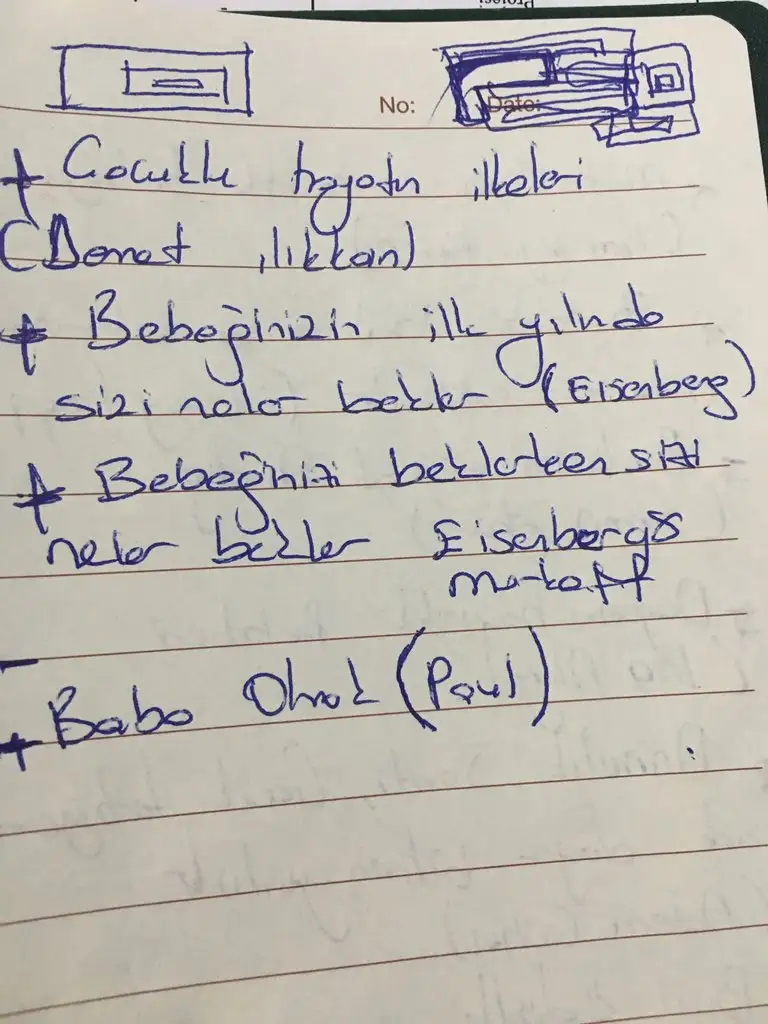 Projesi
No: Date:
+ Cocukla hayatın ilkeleri
(Donat ılıkkan)
+ Bebeğinizin ilk yılında
sizi neler bekler (Eisenberg)
+ Bebeğinizi beklerken sizi
neler bekler Eisenberg&
Markoff
+ Baba Olmak (Paul)